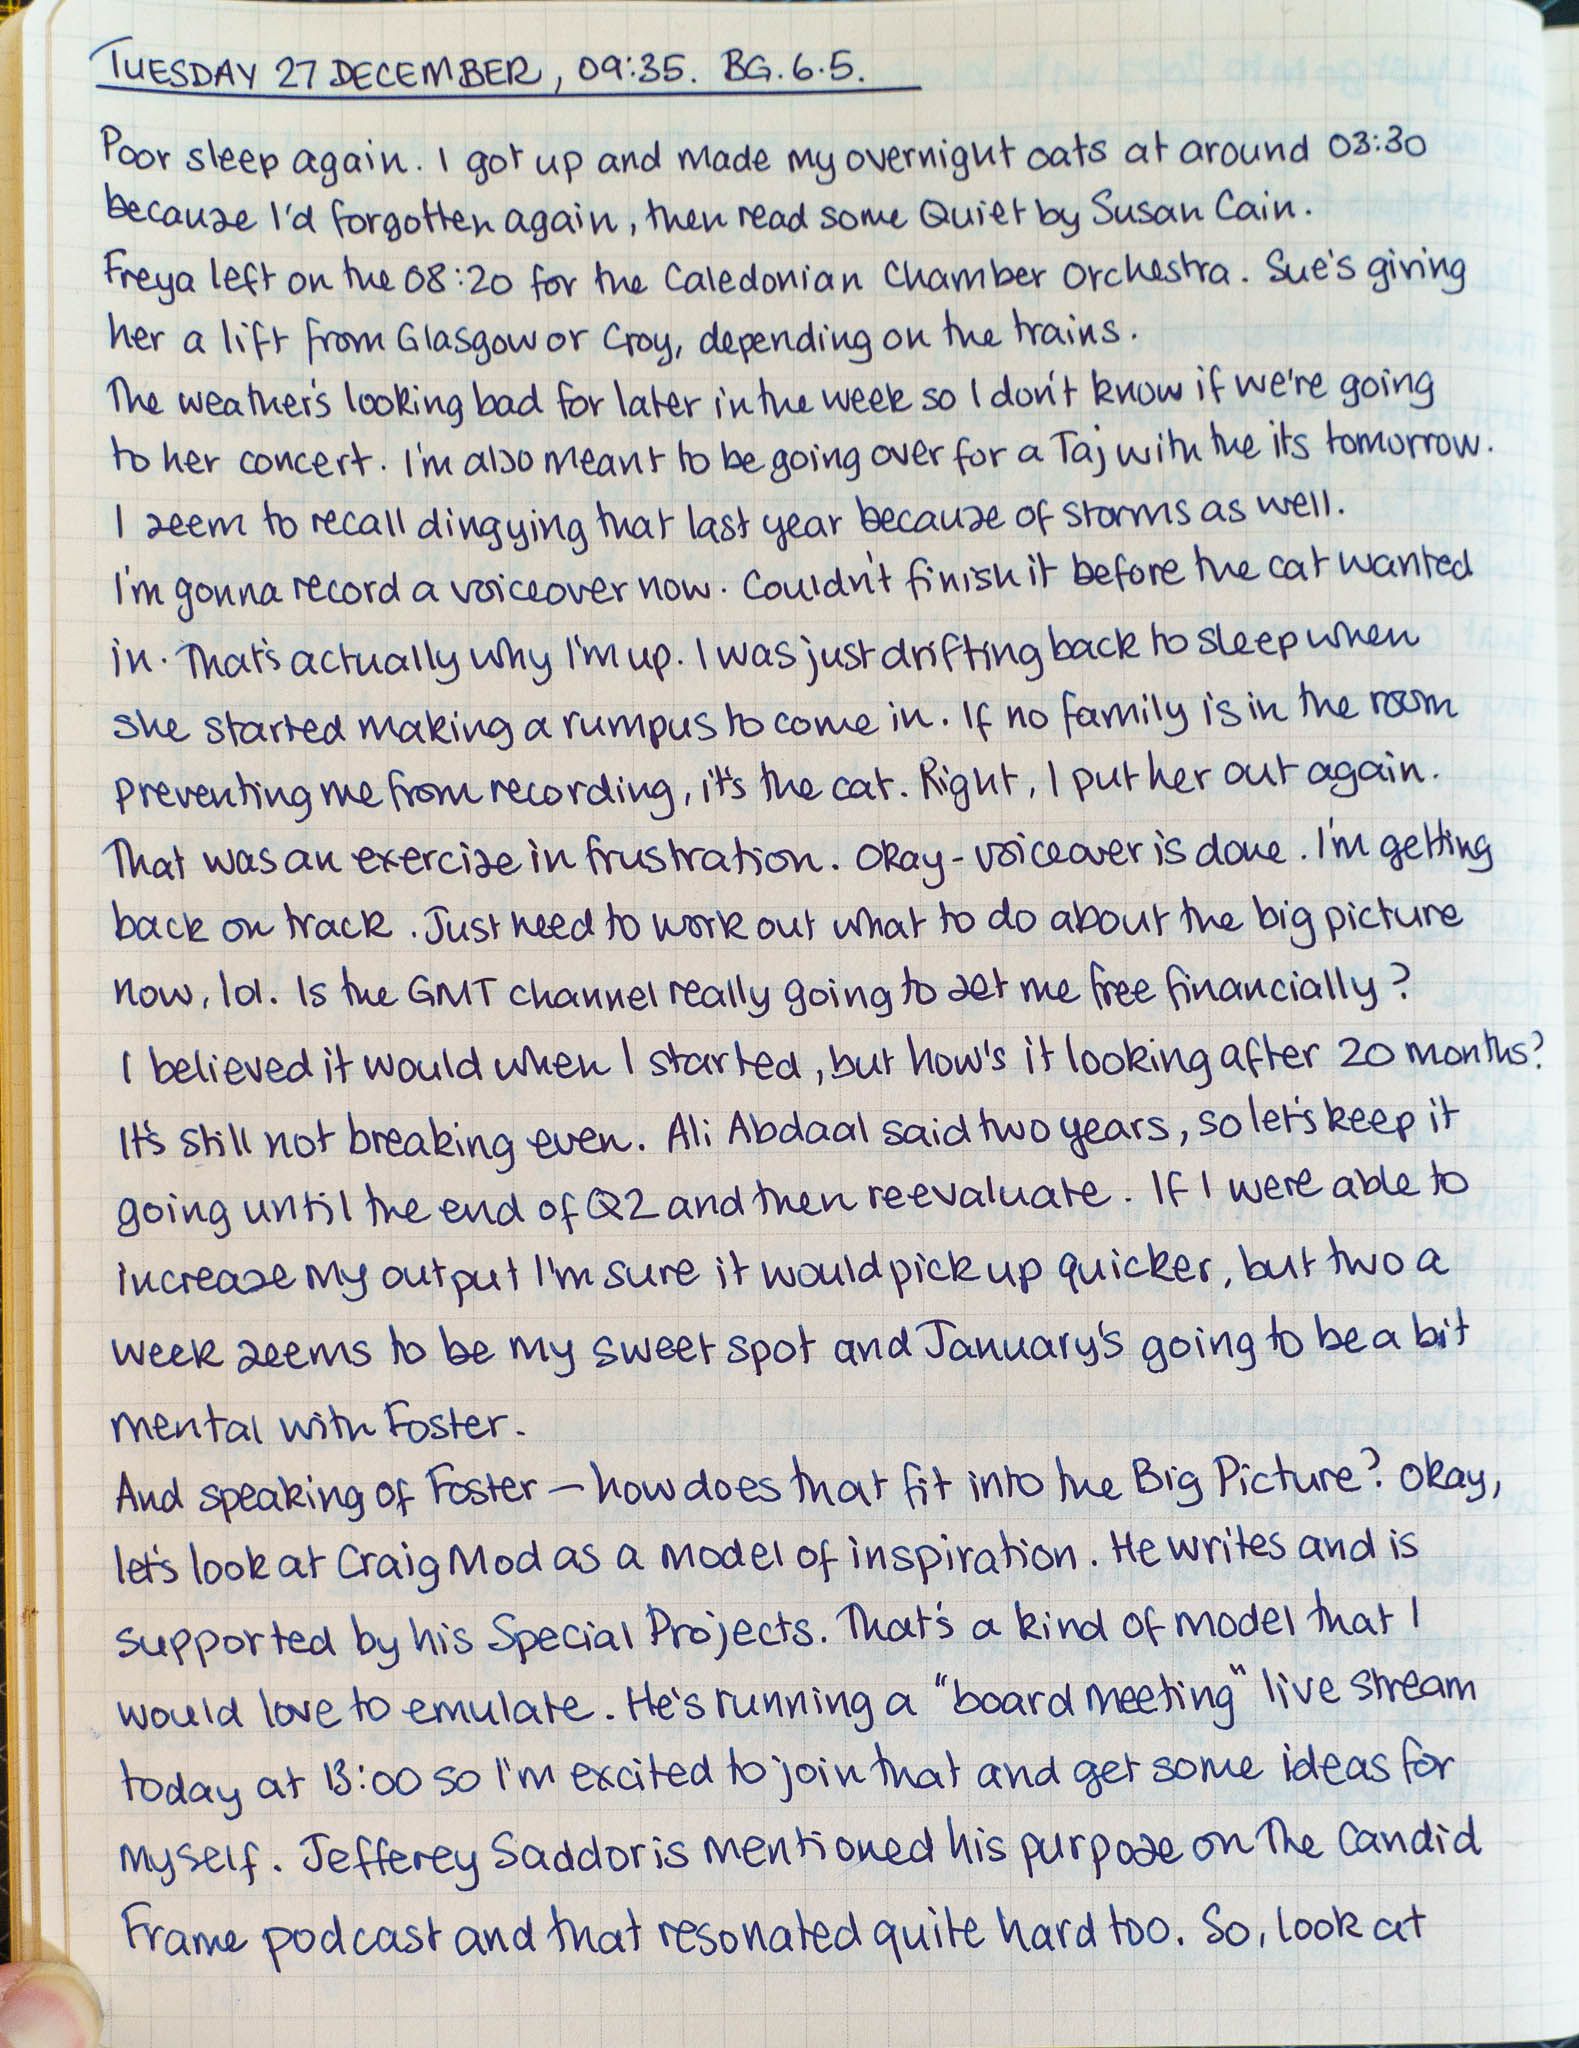 TUESDAY 27 DECEMBER, 09:35. BG. 6.5.
Poor sleep again. I got up and made my overnight oats at around 03:30
because I'd forgotten again, then read some Quiet by Susan Cain.
Freya left on the 08:20 for the Caledonian Chamber Orchestra. Sue's giving
her a lift from Glasgow or Croy, depending on the trains.
The weather's looking bad for later in the week so I don't know if we're going
to her concert. I'm also meant to be going over for a Taj with the its tomorrow.
I seem to recall dingying that last year because of storms as well.
I'm gonna record a voiceover now. Couldn't finish it before the cat wanted
in. That's actually why I'm up. I was just drifting back to sleep when
she started making a rumpus to come in. If no family is in the room
preventing me from recording, it's the cat. Right, I put her out again.
That was an exercise in frustration. Okay - voiceover is done. I'm getting
back on track. Just need to work out what to do about the big picture
now, lol. Is the GMT channel really going to set me free financially?
I believed it would when I started, but how's it looking after 20 months?
It's still not breaking even. Ali Abdaal said two years, so let's keep it
going until the end of Q2 and then reevaluate. If I were able to
increase my output I'm sure it would pick up quicker, but two a
week seems to be my sweet spot and January's going to be a bit
mental with Foster.
And speaking of Foster – how does that fit into the Big Picture? Okay,
let's look at Craig Mod as a model of inspiration. He writes and is
supported by his Special Projects. That's a kind of model that I
would love to emulate. He's running a "board meeting" live stream
today at 13:00 so I'm excited to join that and get some ideas for
myself. Jefferey Saddoris mentioned his purpose on The Candid
Frame podcast and that resonated quite hard too. So, look at